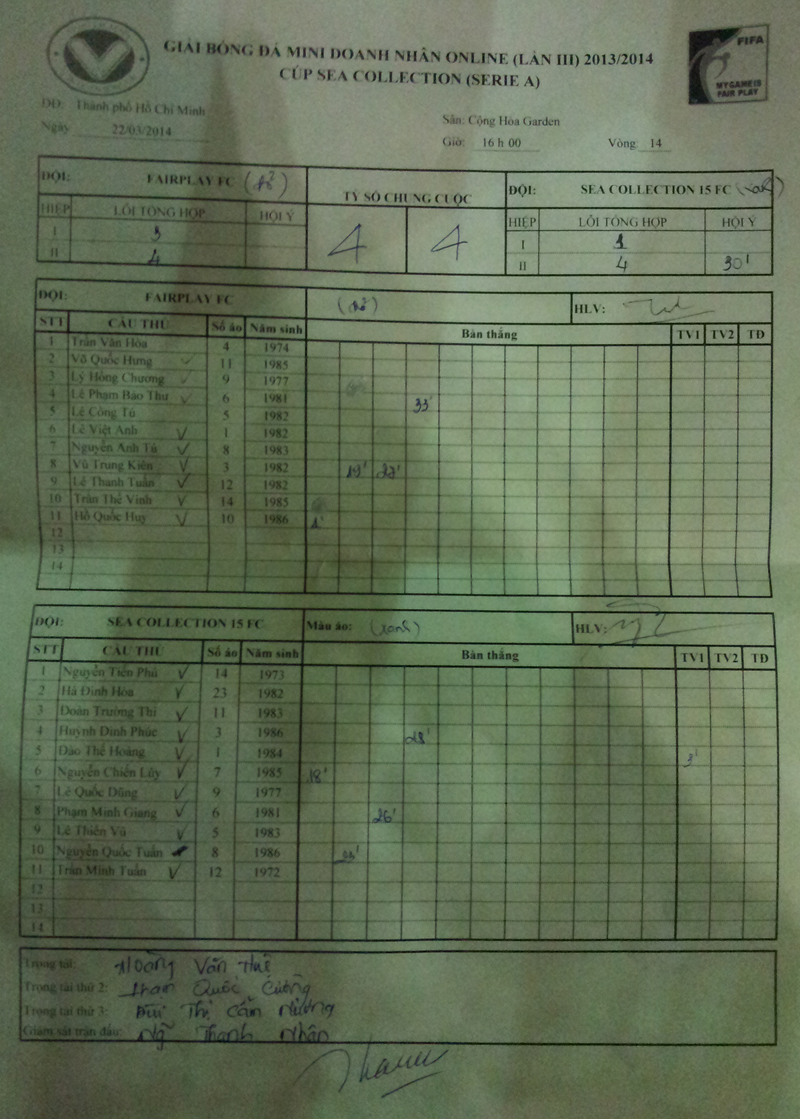 GIẢI BÓNG ĐÁ MINI DOANH NHÂN ONLINE (LẦN III) 2013/2014
CÚP SEA COLLECTION (SERIE A)
FIFA
MY GAME IS
FAIR PLAY
ĐĐ: Thành phố Hồ Chí Minh
Ngày 22/03/2014
Sân: Cộng Hòa Garden
Giờ: 16 h 00 Vòng 14
ĐỘI: FAIRPLAY FC TỶ SỐ CHUNG CUỘC ĐỘI: SEA COLLECTION 15 FC
HIỆP LỖI TỔNG HỢP HỘI Ý 4 4 HIỆP LỖI TỔNG HỢP HỘI Ý
I 3 I 1
II 4 II 4 30'
ĐỘI: FAIRPLAY FC HLV:
STT CẦU THỦ Số áo Năm sinh Bàn thắng TV1 TV2 TĐ
1 Trần Văn Hòa 4 1974
2 Võ Quốc Hưng 11 1985
3 Lý Hồng Chương 9 1977
4 Lê Phạm Bảo Thư 6 1981 33'
5 Lê Công Tú 5 1982
6 Lê Việt Anh 1 1982
7 Nguyễn Anh Tú 8 1983
8 Vũ Trung Kiên 3 1982
9 Lê Thanh Tuấn 12 1982
10 Trần Thế Vinh 14 1985
11 Hồ Quốc Huy 10 1986 1'
12
13
14
ĐỘI: SEA COLLECTION 15 FC Màu áo: (xanh) HLV:
STT CẦU THỦ Số áo Năm sinh Bàn thắng TV1 TV2 TĐ
1 Nguyễn Tiến Phú 14 1973
2 Hà Đình Hòa 23 1982
3 Đoàn Trường Thi 11 1983
4 Huỳnh Đình Phúc 3 1986 28'
5 Đào Thế Hoàng 1 1984 3'
6 Nguyễn Chiến Lũy 7 1985 18'
7 Lê Quốc Dũng 9 1977
8 Phạm Minh Giang 6 1981 26'
9 Lê Thiên Vũ 5 1983
10 Nguyễn Quốc Tuấn 8 1986
11 Trần Minh Tuấn 12 1972
12
13
14
Trọng tài: Hoàng Văn
Trọng tài thứ 2: Quốc Cường
Trọng tài thứ 3: Thị
Giám sát trận đấu: Thanh Nhân